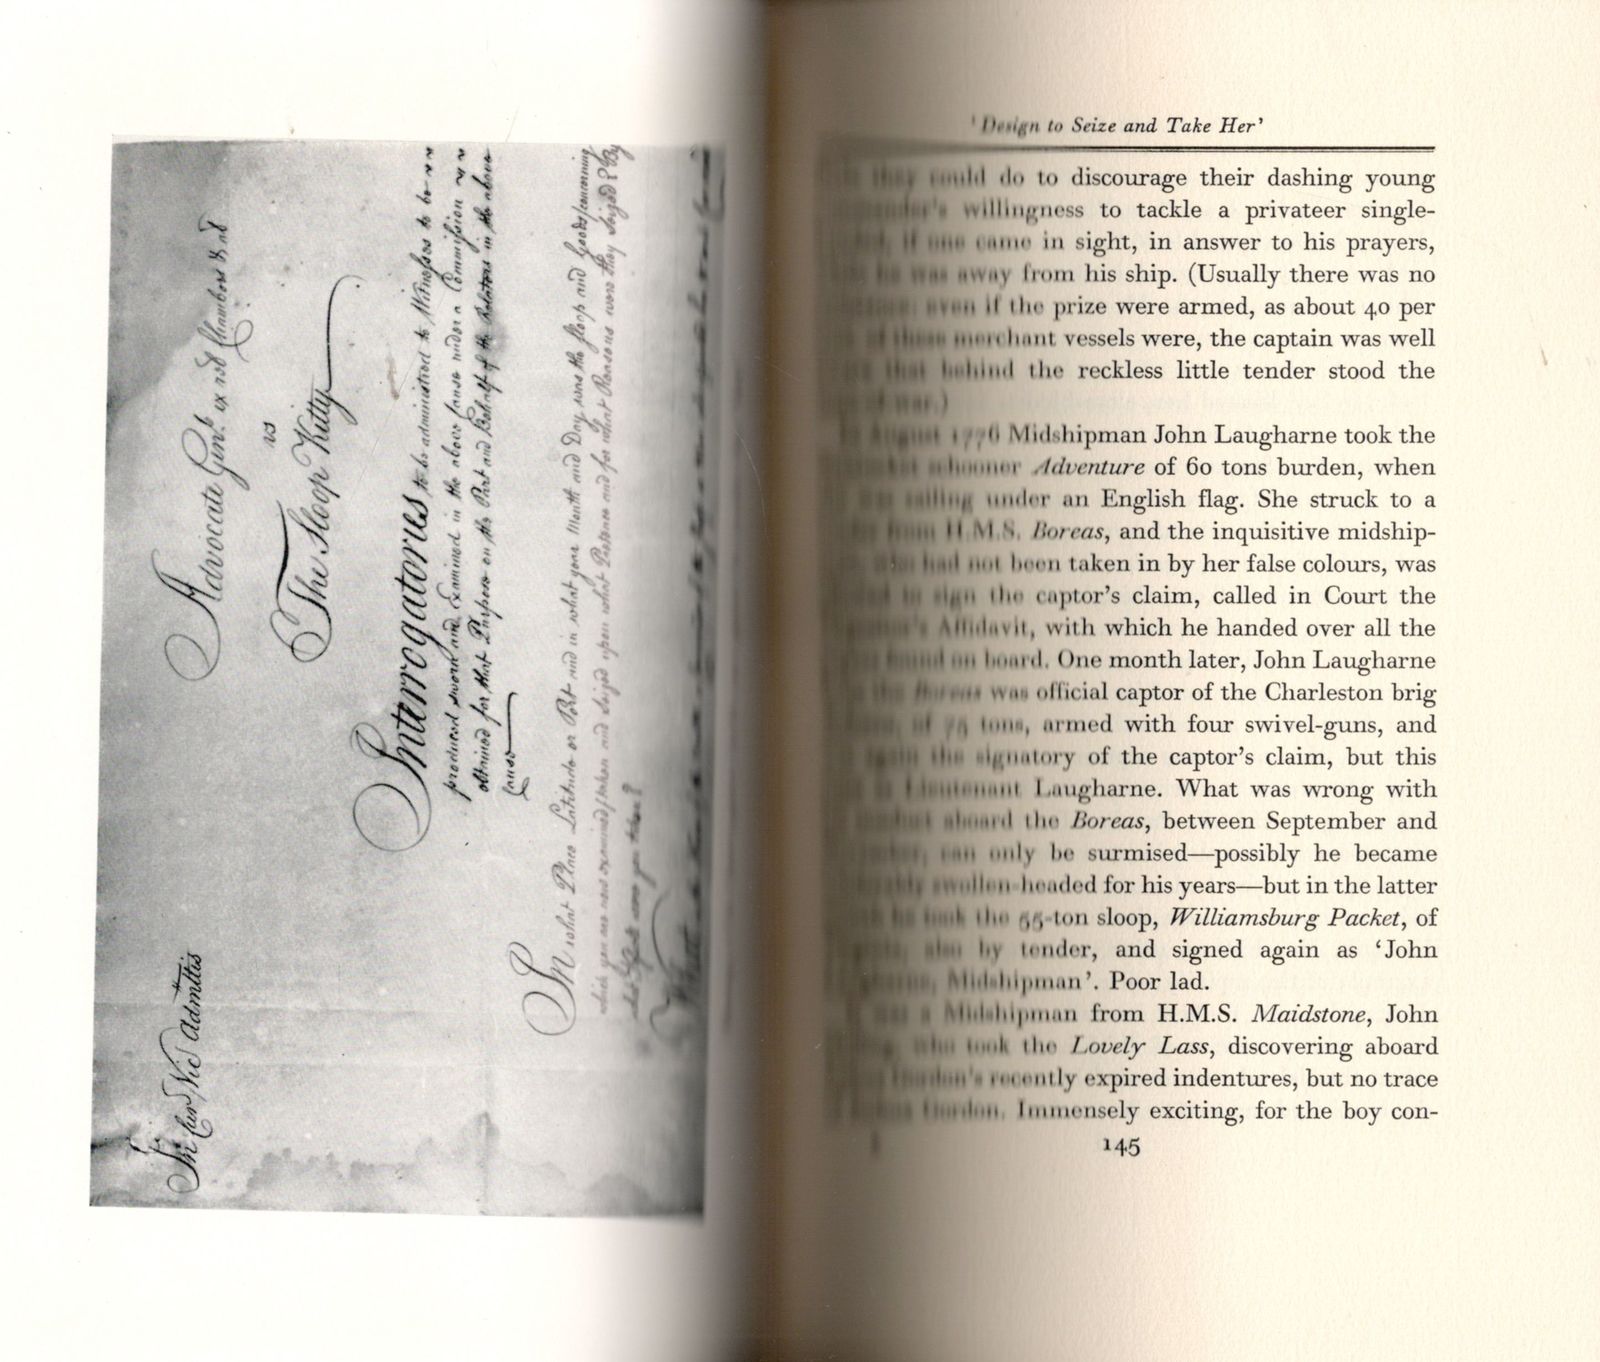 In Cur Vic Admttis
Advocate Genl. ex rel Chambers & al
vs
The Sloop Kitty
Interrogatories to be administred to Witnesses to be
produced sworn and Examined in the above Cause under a Commission
obtained for that Purpose on the Part and Behalf of the Relators in the above
Cause
In what Place Latitude or Port and in what year Month and Day was the Sloop and Goods concerning
which you are now examined taken and Seized upon what Pretence and for what Reasons were they Seized? By
were you taken?
What
'Design to Seize and Take Her'
they could do to discourage their dashing young
willingness to tackle a privateer single-
if one came in sight, in answer to his prayers,
he was away from his ship. (Usually there was no
even if the prize were armed, as about 40 per
of these merchant vessels were, the captain was well
that behind the reckless little tender stood the
of war.)
August 1776 Midshipman John Laugharne took the
schooner Adventure of 60 tons burden, when
sailing under an English flag. She struck to a
from H.M.S. Boreas, and the inquisitive midship-
had not been taken in by her false colours, was
to sign the captor's claim, called in Court the
Affidavit, with which he handed over all the
found on board. One month later, John Laugharne
the Boreas was official captor of the Charleston brig
of 75 tons, armed with four swivel-guns, and
the signatory of the captor's claim, but this
Lieutenant Laugharne. What was wrong with
aboard the Boreas, between September and
can only be surmised—possibly he became
swollen-headed for his years—but in the latter
he took the 55-ton sloop, Williamsburg Packet, of
also by tender, and signed again as 'John
Midshipman'. Poor lad.
a Midshipman from H.M.S. Maidstone, John
who took the Lovely Lass, discovering aboard
recently expired indentures, but no trace
Gordon. Immensely exciting, for the boy con-
145